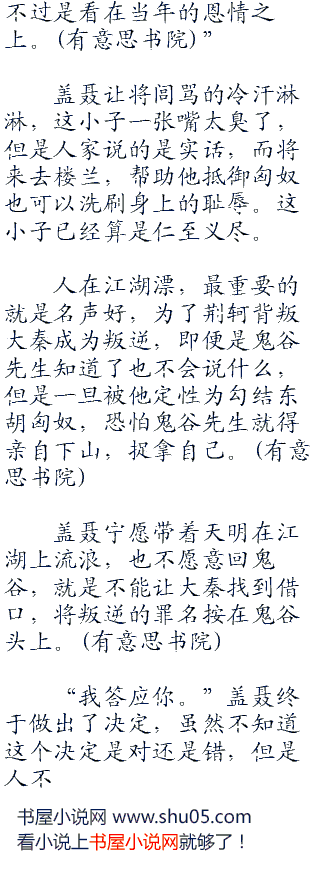 不过是看在当年的恩情之
上。(有意思书院)”
盖聂让将闾骂的冷汗淋
淋，这小子一张嘴太臭了，
但是人家说的是实话，而将
来去楼兰，帮助他抵御匈奴
也可以洗刷身上的耻辱。这
小子已经算是仁至义尽。
人在江湖漂，最重要的
就是名声好，为了荆轲背叛
大秦成为叛逆，即便是鬼谷
先生知道了也不会说什么，
但是一旦被他定性为勾结东
胡匈奴，恐怕鬼谷先生就得
亲自下山，捉拿自己。(有意
思书院)
盖聂宁愿带着天明在江
湖上流浪，也不愿意回鬼
谷，就是不能让大秦找到借
口，将叛逆的罪名按在鬼谷
头上。(有意思书院)
“我答应你。”盖聂终
于做出了决定，虽然不知道
这个决定是对还是错，但是
人不
书屋小说网 www.shu05.com
看小说上书屋小说网就够了！